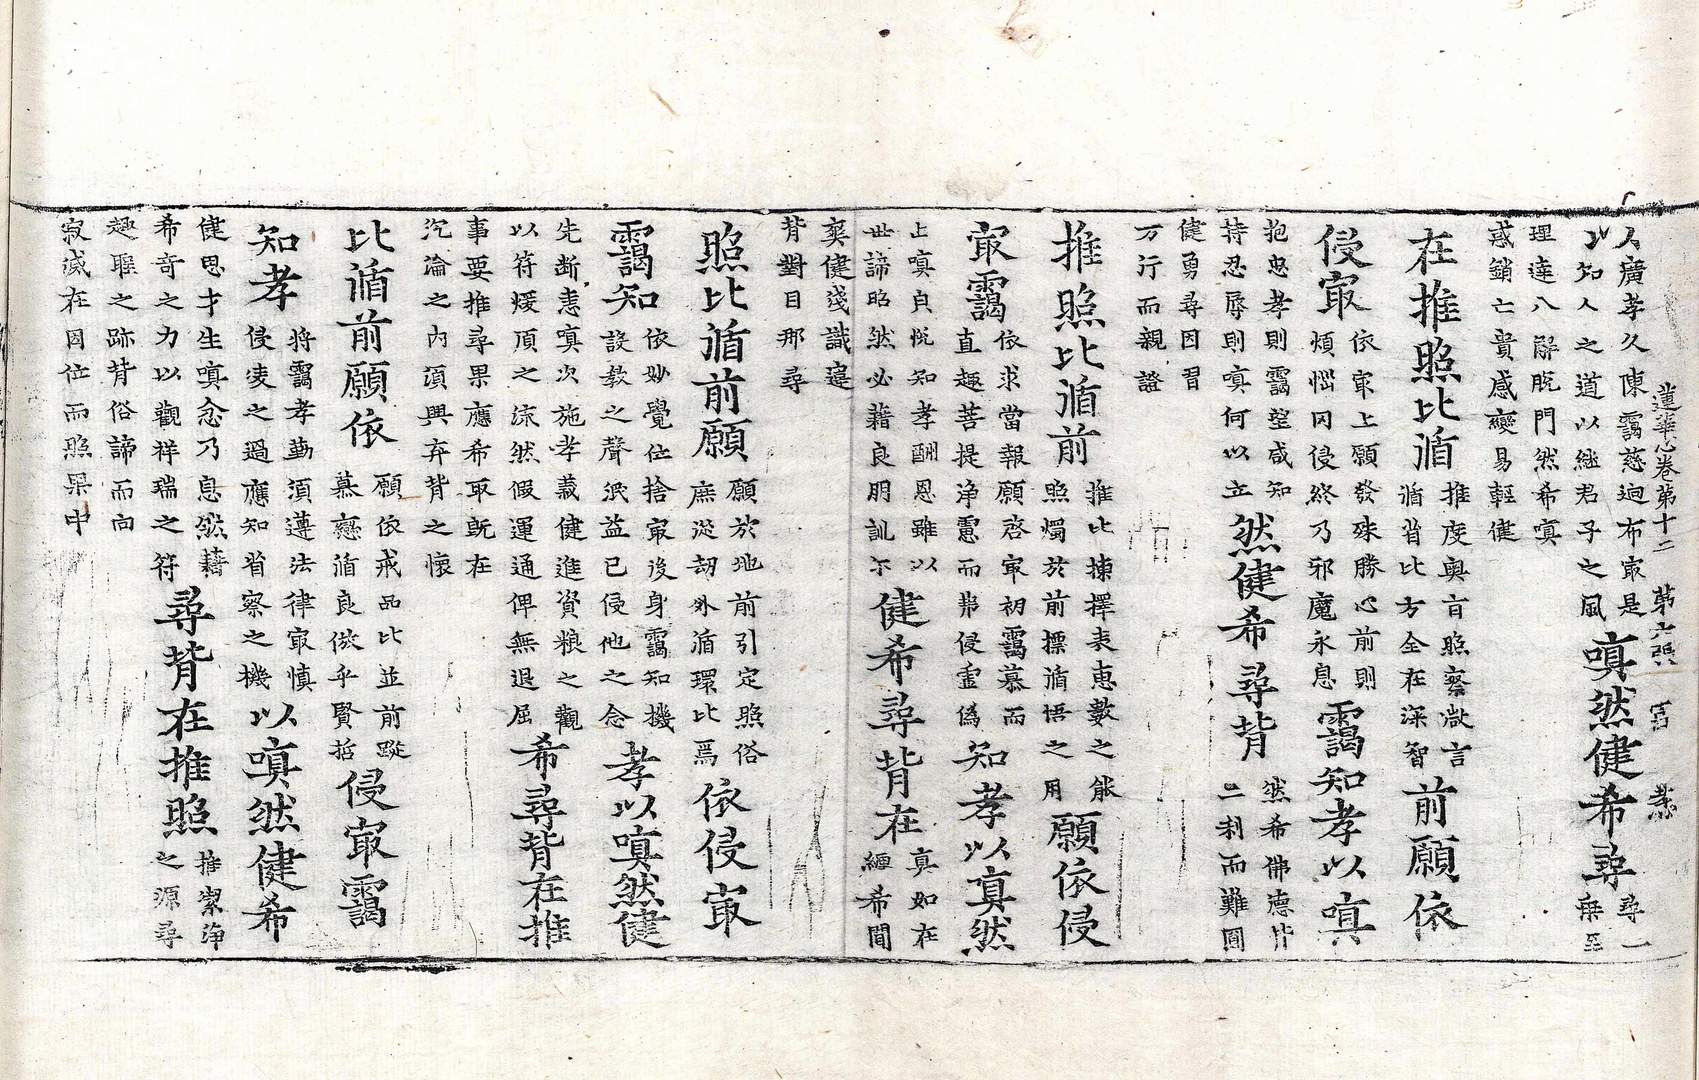 蓮華心卷第十二　第六張　宮
以廣孝久陳靄慈迥布冣是
以知人之道以継君子之風
嗔然健希尋
尋一
無至
理達八解脫門然希嗔
惑銷亡貴感變易輕健
在推照比循
推度奧旨照察微言
循省比方全在深智
前願依
侵冣
依冣上願發殊勝心前則
煩惱罔侵終乃邪魔永息
靄知孝以嗔
抱忠孝則靄堅感知
持忍辱則嗔何以立
然健希尋背
然希佛德背
二利而難圓
健勇尋因習
万行而親證
推照比循前
推比揀擇表惠數之能
照燭於前標循悟之用
願依侵
冣靄
依求當報願啓冣初靄慕而
直趣菩提淨慮而弗侵虛僞
知孝以嗔然
上嗔貞悅知孝酬恩雖以
世諦昭然必藉良朋訓尒
健希尋背在
真如在
纏希間
健淺識
背對目那尋
照比循前願
願於地前引定照俗
庶從劫外循環比焉
依侵冣
靄知
依妙覺位捨冣後身靄知機
設教之聲泯益已侵他之念
孝以嗔然健
先断恚嗔次施孝義健進資粮之觀
以符煖頂之流然假運通俾無退屈
希尋背在推
事要推尋果應希取旣在
沉淪之內須興弃背之懷
比循前願依
願依戒品比並前蹤
慕戀循良倣乎賢哲
侵冣靄
知孝
將靄孝勤須遵法律冣慎
侵凌之過應知省察之機
以嗔然健希
健思才生嗔念乃息然藉
希奇之力以觀祥瑞之符
尋背在推照
推潔淨
之源尋
趣聖之跡背俗諦而向
寂滅在因位而照果中